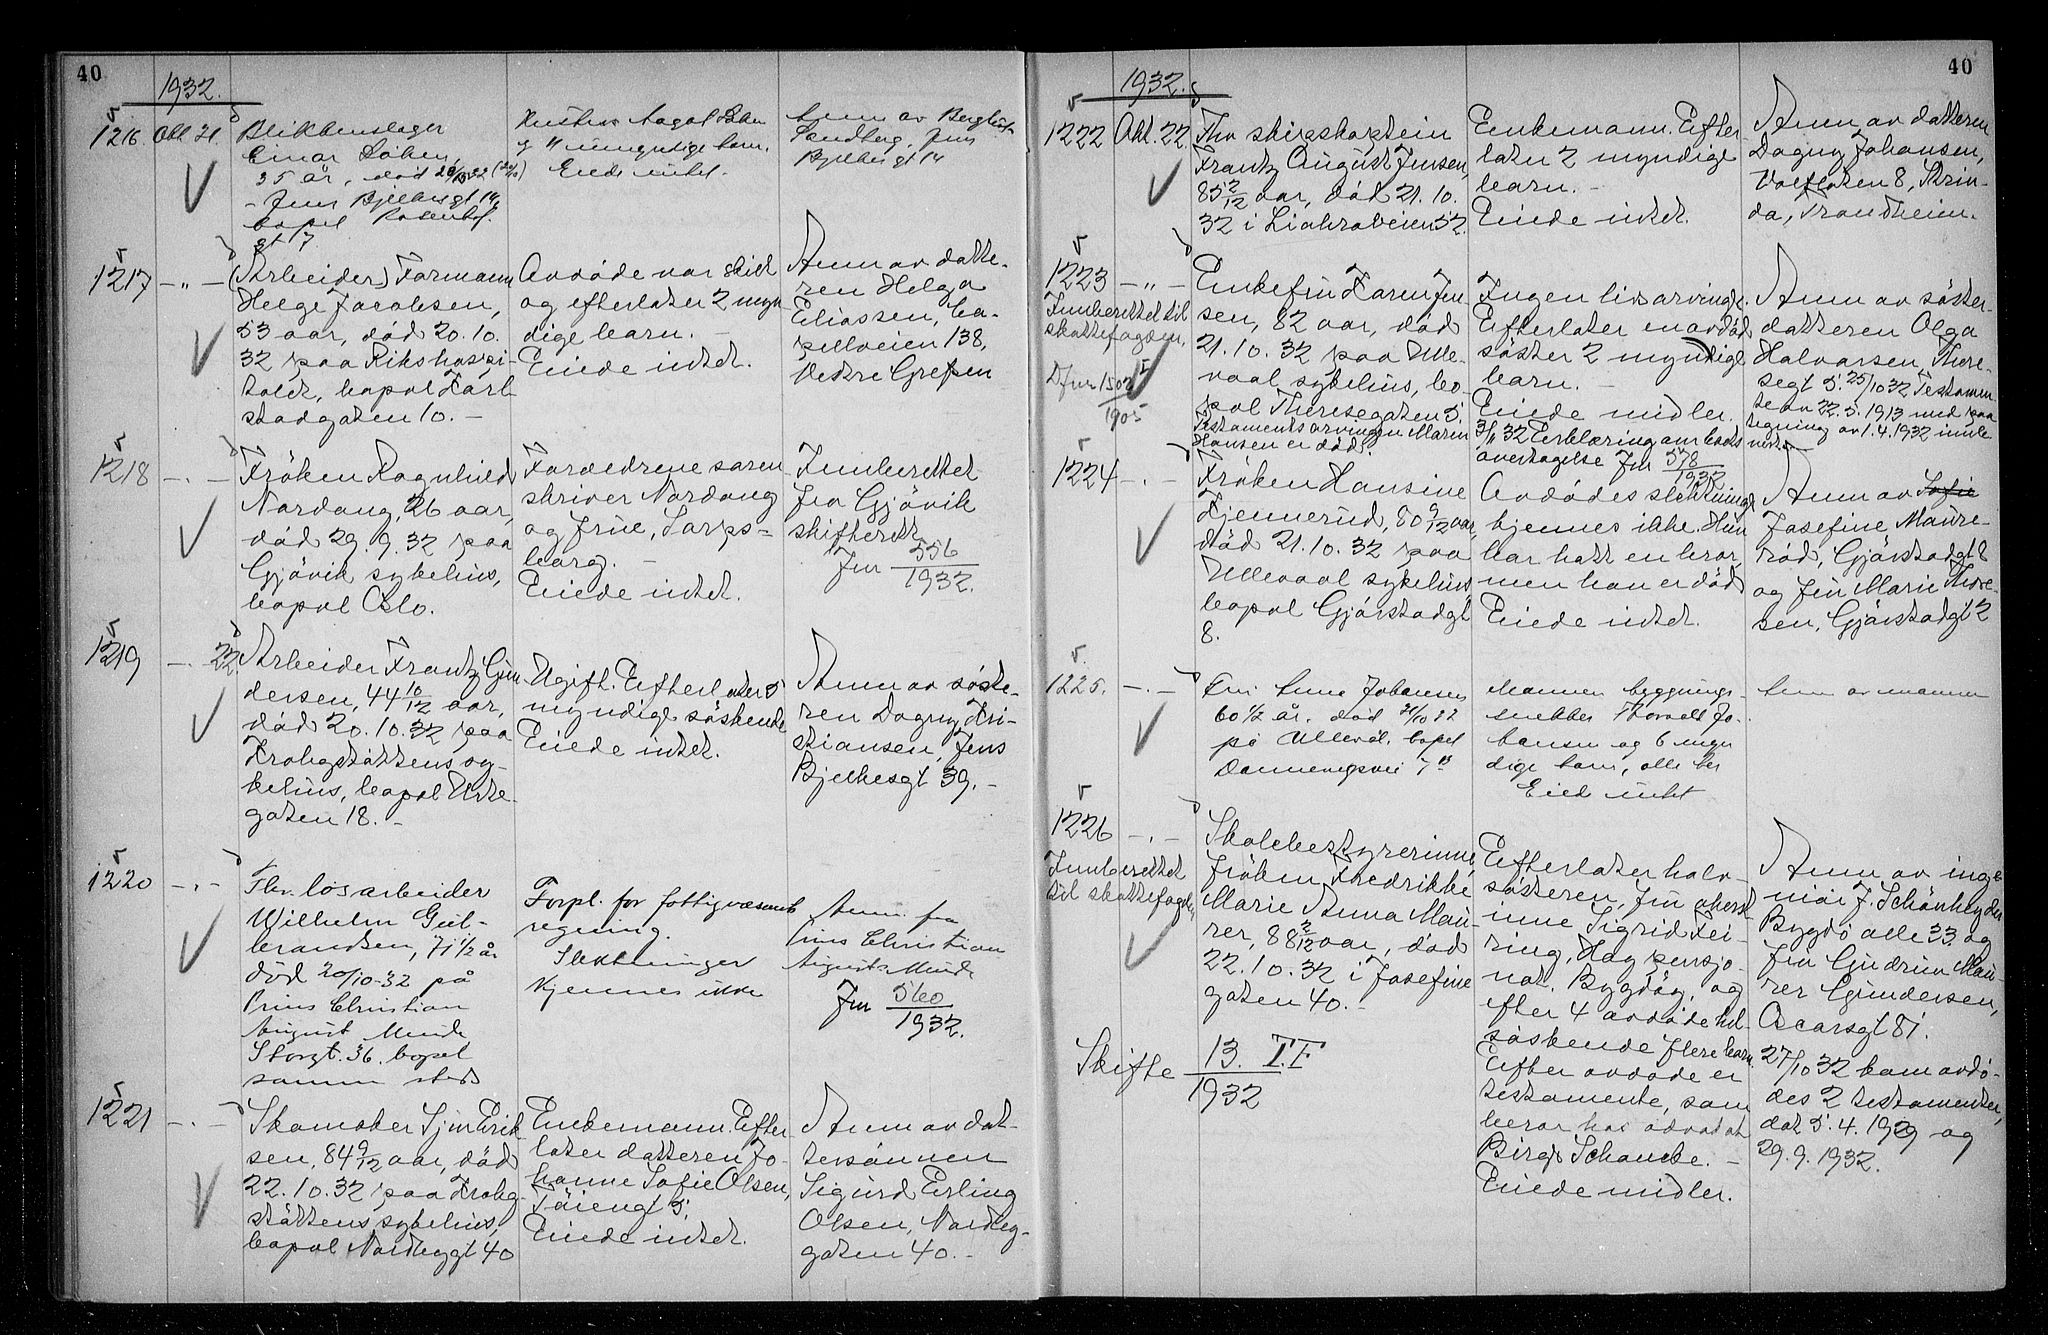 40
1932.
1216. Okt 21.
Blikkenslager
Einar
35 år, død
Jens Bjelkesgt 14
bopel Rosenhof
gt 7
Hustru Aagot
umyndige barn.
Eiede intet.
Anm av
Sandberg, Jens
Bjelkesgt 14
1217 — " —
(Arbeider) Formann
Helge Jacobsen,
53 aar, död 20.10.
32 paa Rikshospi-
talet, bopæl Karl
stadgaten 10. –
Avdöde var skilt
og efterlater 2 myn
dige barn. –
Eiede intet.
Anm av datte-
ren Helga
Eliassen,
138,
Vestre Grefsen
1218 — . —
Fröken Ragnhild
Nordang, 26 aar,
död 29.9.32 paa
Gjövik sykehus,
bopæl Oslo.
Forældrene soren
skriver Nordang
og frue, Sarps-
borg. –
Eiede intet.
Innberettet
fra Gjövik
skifterett
Jnr 556
1932.
1219 — . 22.
Arbeider Frantz Gun
dersen, 44 10/12 aar,
död 20.10.32 paa
Krohgstöttens sy-
kehus, bopæl Urte-
gaten 18. –
Ugift. Efterlater 5
myndige söskende
Eiede intet.
Anm av söste-
ren Dagny Kri-
stiansen, Jens
Bjelkesgt 39. –
1220 — . —
Fhv. løsarbeider
Wilhelm Gul-
brandsen, 71 1/2 år
död 20/10-32 på
Prins Christian
August Minde
Storgt. 36. bopel
samme sted
Forpl. for fattigvæsenets
regning.
Slektninger
kjennes ikke
Anm. fra
Prins Christian
Augusts Minde
Jnr 560
1932.
1221 — . —
Skomaker Sjur Erik
sen, 84 9/12 aar, död
22.10.32 paa Krohg
stöttens sykehus,
bopæl Nordbygt 40
Enkemann. Efter
later datteren Jo-
hanne Sofie Olsen,
Töiengt 5.
Eiede intet.
Anm av dat-
tersönnen
Sigurd Erling
Olsen, Nordby-
gaten 40. –
40
1932.
1222 Okt. 22.
Fhv skipskaptein
Frantz August Jensen,
85 2/12 aar, död 21.10.
32 i Liakroveien 52.
Enkemann. Efter
later 2 myndige
barn. –
Eiede intet.
Anm av datteren
Dagny Johansen,
8, Strin-
da, Trondheim.
1223 — " —
Innberettet til
skattefogden.
1905
Enkefru Karen Jen
sen, 82 aar, död
21.10.32 paa Ulle-
vaal sykehus, bo-
pæl Theresegaten 5.
Testamentsarvingen Marie
Hansen er död.
Ingen livsarvinge.
Efterlater en avdöd
söster 2 myndige
barn. –
Eiede midler.
32 Erklæring om bo
overtagelse Jnr 578
1932
Anm av söster-
datteren Olga
Halvorsen, There-
segt 5. 25/10 32 Testamen
te av 22.5.1913 med paa
tegning av 1.4.1932 innle
vert.
1224 — . —
Fröken Hansine
Kjennerud, 80 9/12 aar,
död 21.10.32 paa
Ullevaal sykehus,
bopæl Gjörstadgt
8.
Avdödes slektninge
kjennes ikke. Hun
har hatt en bror
men han er död
Eiede intet.
Anm av Sofie
Josefine Maure-
röd, Gjörstadgt 2
og fru Marie Thore-
sen, Gjörstadgt 2
1225. — . —
Fru Anna Johansen
60 1/2 år. død 21/10 32
på Ullevål. bopel
Dannevigsvei 7
Mannen byggnings-
snekker Thorvald Jo-
hansen og 6 myn
dige barn, alle her
Eied intet
Anm av mannen
1226 — . —
Innberettet
til skattefogden
Skolebestyrerinne
fröken Fredrikke
Marie Anna Mau-
rer, 88 2/12 aar, död
22.10.32 i Josefine
gaten 40. –
Skifte 13. T.F
1932
Efterlater halv-
sösteren, fru oberst
inne Sigrid Fei-
ring, Hög pensjo-
nat, Bygdöy, og
efter 4 avdöde hel
söskende flere barn
Efter avdöde er
testamente, som
beror hos advokat
Birger Schancke. –
Eiede midler.
Anm av inge
niör J. Schönheyder
Bygdö alle 33. og
fru Gudrun Mau-
rer Gundersen,
Oscarsgt 81.
27/10 32 kom avdö-
des 2 testamenter,
dat 5.4.1929 og
29.9.1932.